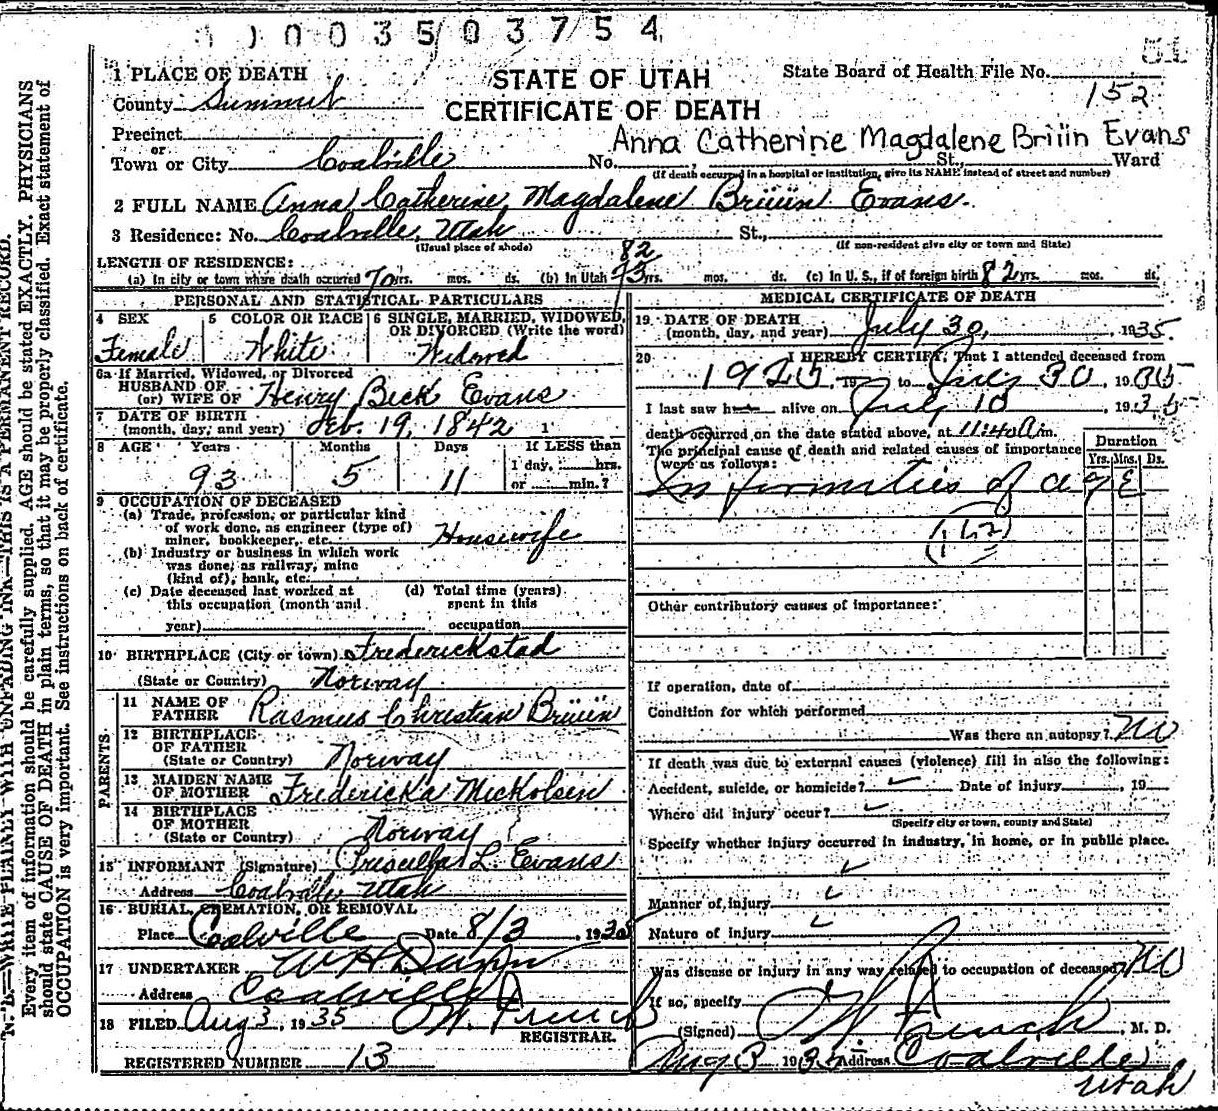 1003503754
51
1 PLACE OF DEATH
STATE OF UTAH
State Board of Health File No.
County Summit
CERTIFICATE OF DEATH
152
Precinct
or
Anna Catherine Magdalene Briiin Evans
Town or City Coalville No. St., Ward
(If death occurred in a hospital or institution, give its NAME instead of street and number)
2 FULL NAME Anna Catherine Magdalene Brüün Evans.
3 Residence: No. Coalville, Utah St.,
(Usual place of abode)
(If non-resident give city or town and State)
LENGTH OF RESIDENCE:
82
(a) In city or town where death occurred 70 yrs. mos. ds. (b) In Utah 73 yrs. mos. ds. (c) In U. S., if of foreign birth 82 yrs. mos. ds.
PERSONAL AND STATISTICAL PARTICULARS
4 SEX
Female
5 COLOR OR RACE
White
6 SINGLE, MARRIED, WIDOWED, OR DIVORCED (Write the word)
Widowed
6a If Married, Widowed, or Divorced
HUSBAND OF
(or) WIFE OF Henry Beck Evans
7 DATE OF BIRTH
(month, day, and year) Feb. 19, 1842 1
8 AGE Years Months Days If LESS than
93 5 11
1 day, hrs.
or min.?
9 OCCUPATION OF DECEASED
(a) Trade, profession, or particular kind
of work done, as engineer (type of)
miner, bookkeeper, etc. Housewife
(b) Industry or business in which work
was done, as railway, mine
(kind of), bank, etc.
(c) Date deceased last worked at
this occupation (month and
year)
(d) Total time (years)
spent in this
occupation
10 BIRTHPLACE (City or town) Frederickstad
(State or Country) Norway
PARENTS
11 NAME OF
FATHER Rasmus Christian Brüün
12 BIRTHPLACE
OF FATHER
(State or Country) Norway
13 MAIDEN NAME
OF MOTHER Fredericka Mickolsen
14 BIRTHPLACE
OF MOTHER
(State or Country) Norway
15 INFORMANT (Signature) Priscilla L. Evans
Address Coalville, Utah
16 BURIAL, CREMATION, OR REMOVAL
Place Coalville Date 8/3, 1935
17 UNDERTAKER W H
Address Coalville
18 FILED Aug 3, 1935 O W. French
REGISTRAR.
REGISTERED NUMBER 13
MEDICAL CERTIFICATE OF DEATH
19 DATE OF DEATH
(month, day, and year) July 30, 1935.
20 I HEREBY CERTIFY, That I attended deceased from
1925 19 to July 30, 1935
I last saw h alive on July 10, 1935
death occurred on the date stated above, at 11:40 a m.
The principal cause of death and related causes of importance
were as follows:
Duration
Yrs. Mos. Ds.
Infirmities of age
(162)
Other contributory causes of importance:
If operation, date of
Condition for which performed
Was there an autopsy? No
If death was due to external causes (violence) fill in also the following:
Accident, suicide, or homicide? Date of injury , 19
Where did injury occur?
(Specify city or town, county and State)
Specify whether injury occurred in industry, in home, or in public place.
Manner of injury
Nature of injury
Was disease or injury in any way related to occupation of deceased? No
If so, specify
(Signed) O W French, M. D.
Aug 3 1935 Address Coalville
Utah
N. B.—WRITE PLAINLY WITH UNFADING INK—THIS IS A PERMANENT RECORD.
Every item of information should be carefully supplied. AGE should be stated EXACTLY. PHYSICIANS
should state CAUSE OF DEATH in plain terms, so that it may be properly classified. Exact statement of
OCCUPATION is very important. See instructions on back of certificate.